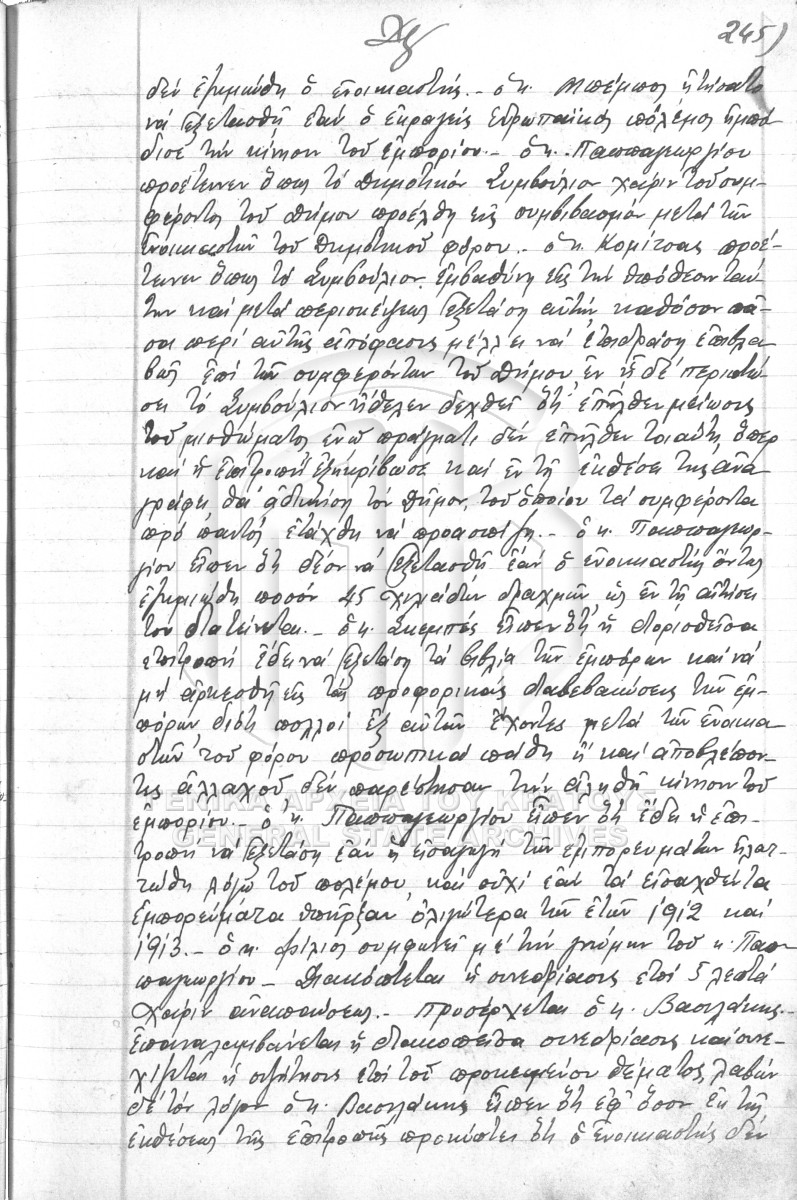 245)
δέν ἐζημιώθη ὁ ἐνοικιαστής.- ὁ κ. Μπέμπος ἠτήσατο
νά ἐξετασθῇ ἐάν ὁ ἐκραγείς Εὐρωπαϊκός πόλεμος ἠμπό
δισε τήν κίνησιν τοῦ ἐμπορίου.- ὁ κ. Παππαγεωργίου
προέτεινεν ὅπως τό Δημοτικόν Συμβούλιον χάριν τοῦ συμ-
φέροντος τοῦ Δήμου προέλθῃ εἰς συμβιβασμόν μετά τῶν
ἐνοικιαστῶν τοῦ Δημοτικοῦ φόρου.- ὁ κ. Κομίτσας προέ-
τεινεν ὅπως τό Συμβούλιον ἐμβαθύνῃ εἰς τήν ὑπόθεσιν ταύ
την καί μετά περισκέψεως ἐξετάσῃ αὐτήν καθόσον πᾶ-
σα περί αὐτῆς ἀπόφασις μέλλει νά ἐπιδράσῃ ἐπιβλα
βῶς ἐπί τῶν συμφερόντων τοῦ Δήμου, ἐν ᾗ δέ περιπτώ
σει τό Συμβούλιον ἤθελεν δεχθῆ ὅτι ἐπῆλθεν μείωσις
τοῦ μισθώματος ἐνῶ πράγματι δέν ἐπῆλθεν τοιαύτη ὅπερ
καί ἡ ἐπιτροπή ἐξηκρίβωσε καί ἐν τῇ ἐκθέσει της ἀνα
γράφει θά ἀδικήσῃ τόν Δῆμον, τοῦ ὁποίου τά συμφέροντα
πρό παντός ἐτάχθη νά προασπίζῃ.- ὁ κ. Παππαγεωρ-
γίου εἶπεν ὅτι δέον νά ἐξετασθῇ ἐάν ὁ ἐνοικιαστής ὄντως
ἐζημιώθη ποσόν 45 χιλιάδων δραχμῶν ὡς ἐν τῇ αἰτήσει
του διατείνεται.- ὁ κ. Σκεμπές εἶπεν ὅτι ἡ διορισθεῖσα
ἐπιτροπή ἔδει νά ἐξετάσῃ τά βιβλία τῶν ἐμπόρων καί νά
μή ἀρκεσθῇ εἰς τάς προφορικάς διαβεβαιώσεις τῶν ἐμ-
πόρων, διότι πολλοί ἐξ αὐτῶν ἔχοντες μετά τῶν ἐνοικια
στῶν τοῦ φόρου προσωπικά πάθη ἤ καί ἀποβλέπον-
τες ἀλλαχοῦ δέν παρέστησαν τήν ἀληθῆ κίνησιν τοῦ
ἐμπορίου.- ὁ κ. Παππαγεωργίου εἶπεν ὅτι ἔδει ἡ ἐπι-
τροπή νά ἐξετάσῃ ἐάν ἡ εἰσαγωγή τῶν ἐμπορευμάτων ἠλατ-
τώθη λόγῳ τοῦ πολέμου, καί οὐχί ἐάν τά εἰσαχθέντα
ἐμπορεύματα ὑπῆρξαν ὀλιγώτερα τῶν ἐτῶν 1912 καί
1913.- ὁ κ. Φίλιος συμφωνεῖ μέ τήν γνώμην τοῦ κ. Παπ
παγεωργίου.- Διακόπτεται ἡ συνεδρίασις ἐπί 5 λεπτά
χάριν ἀναπαύσεως.- Προσέρχεται ὁ κ. Βασιλάκης.-
Ἐπαναλαμβάνεται ἡ διακοπεῖσα συνεδρίασις καί συνε-
χίζεται ἡ συζήτησις ἐπί τοῦ προκειμένου θέματος, λαβών
δέ τόν λόγον ὁ κ. Βασιλάκης εἶπεν ὅτι ἐφ' ὅσον ἐκ τῆς
ἐκθέσεως τῆς ἐπιτροπῆς προκύπτει ὅτι ὁ ἐνοικιαστής δέν
ΓΕΝΙΚΑ ΑΡΧΕΙΑ ΤΟΥ ΚΡΑΤΟΥΣ
GENERAL STATE ARCHIVES